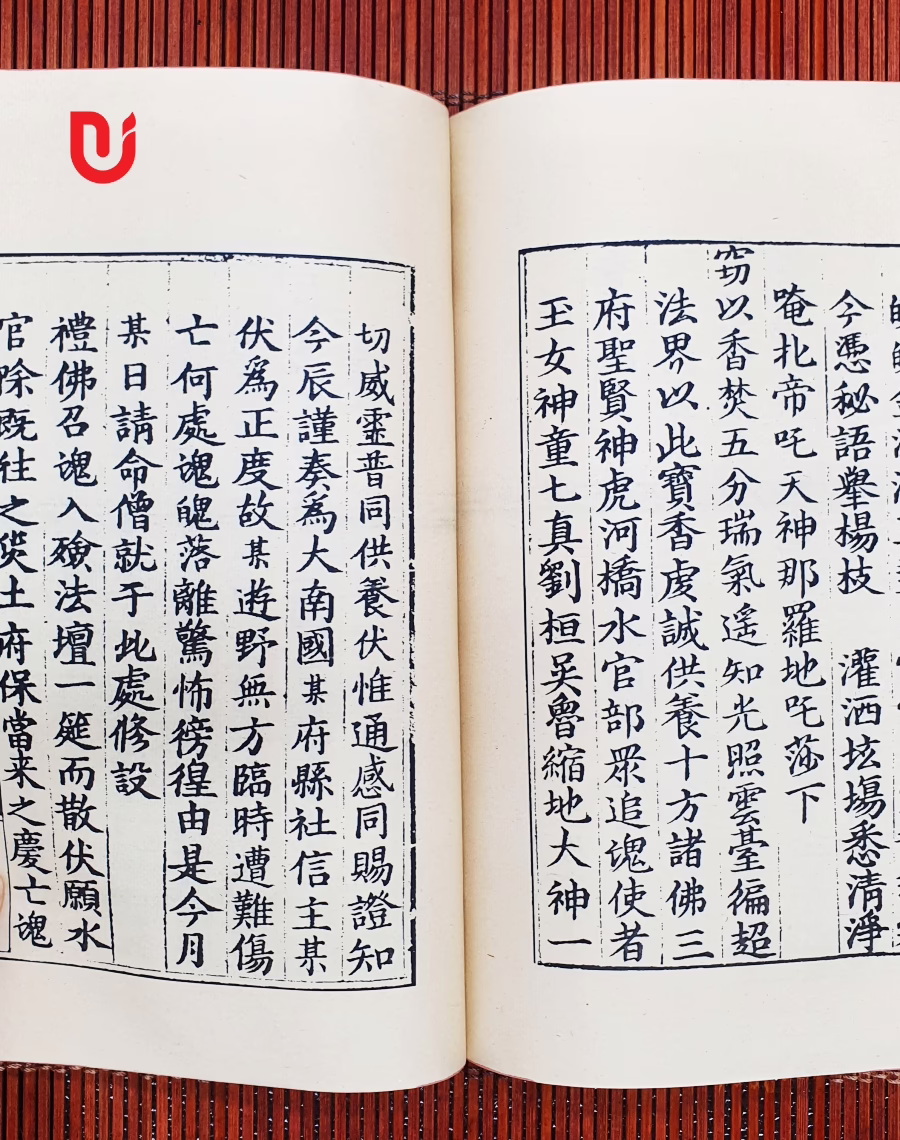 今憑秘語舉楊枝 灌洒坛場悉清淨
唵北帝吒天神那羅地吒莎下
窃以香焚五分瑞氣遥知光照雲臺徧超
法界以此寶香虔誠供養十方諸佛三
府聖賢神虎河橋水官部眾追魂使者
玉女神童七真劉桓吴魯縮地大神一
切威靈普同供養伏惟通感同賜證知
今辰謹奏爲大南國某府縣社信主某
伏爲正度故某遊野無方臨時遭難傷
亡何處魂魄落離驚怖徬徨由是今月
某日請命僧就于此處修設
禮佛召魂入殮法壇一筵而散伏願水
官除既往之災土府保當来之慶亡魂